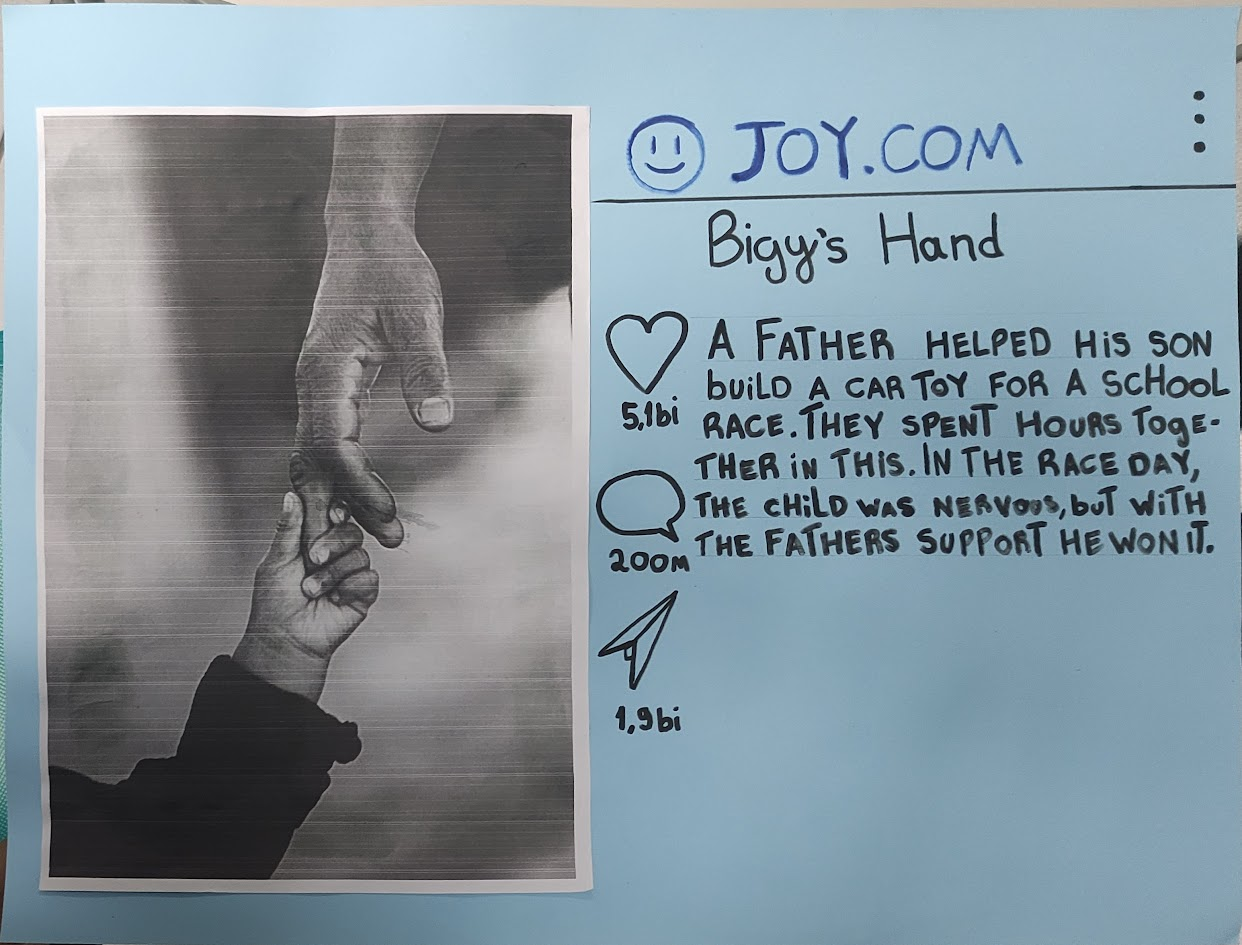 JOY.COM
Bigy's Hand
A FATHER HELPED HiS SON
buiLD A CAR TOY FOR A SCHOOL
RACE. THEY SPENT HOURS TOgE-
THER iN THIS. IN THE RACE DAY,
THE CHiLD WAS NERVOUS, buT WiTH
THE FATHERS SUPPORT HE WON IT.
5,1bi
200M
1,9bi